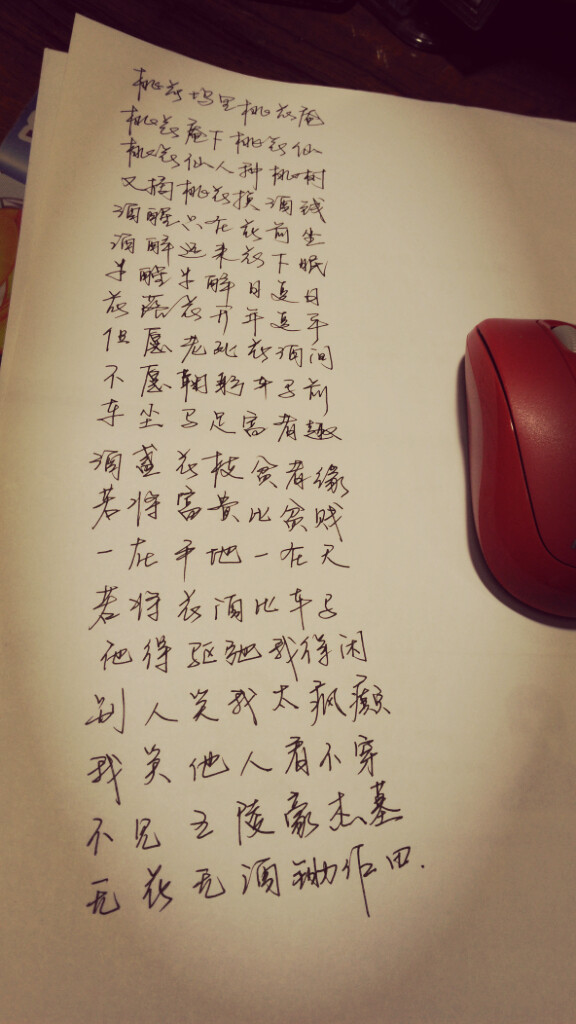 桃花坞里桃花庵
桃花庵下桃花仙
桃花仙人种桃树
又摘桃花换酒钱
酒醒只在花前坐
酒醉还来花下眠
半醒半醉日复日
花落花开年复年
但愿老死花酒间
不愿鞠躬车马前
车尘马足富者趣
酒盏花枝贫者缘
若将富贵比贫贱
一在平地一在天
若将花酒比车马
他得驱驰我得闲
别人笑我太疯癫
我笑他人看不穿
不见五陵豪杰墓
无花无酒锄作田.